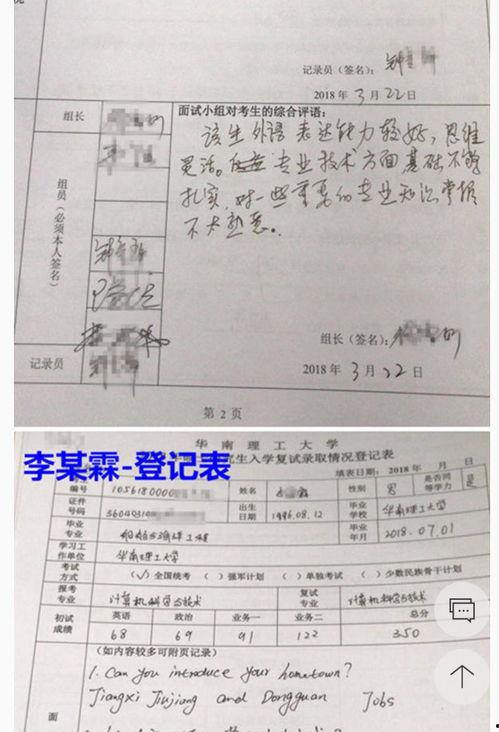 记录员（签名）：
2018年 3月 22日
组长
面试小组对考生的综合评语：
该生外语表达能力较好，思维
灵活。但在专业技术方面基础不够
扎实，对一些重要的专业知识掌握
不太熟悉。
组员（必须本人签名）
组长（签名）：
2018年 3月 22日
记录员
第 2 页
华南理工大学
李某霖-登记表
生入学复试录取情况登记表
填表日期：2018 年 月 日
编号
1056180000
姓名
性别
男
是否同等学力
是
证件号码
36040310
出生日期
1996.08.12
毕业学校
华南理工大学
毕业专业
船舶与海洋工程
毕业年月
2018.07.01
学习工作单位
华南理工大学
考试方式
（√）全国统考 （ ）强军计划 （ ）单独考试 （ ）少数民族骨干计划
报考专业
计算机科学与技术
复试专业
计算机科学与技术
初试成绩
英语 政治 业务一 业务二 总分
68 69 91 122 350
（如内容较多可附页记录）
1. Can you introduce your hometown?
Jiangxi Jiujiang and Dongguan Jobs
面